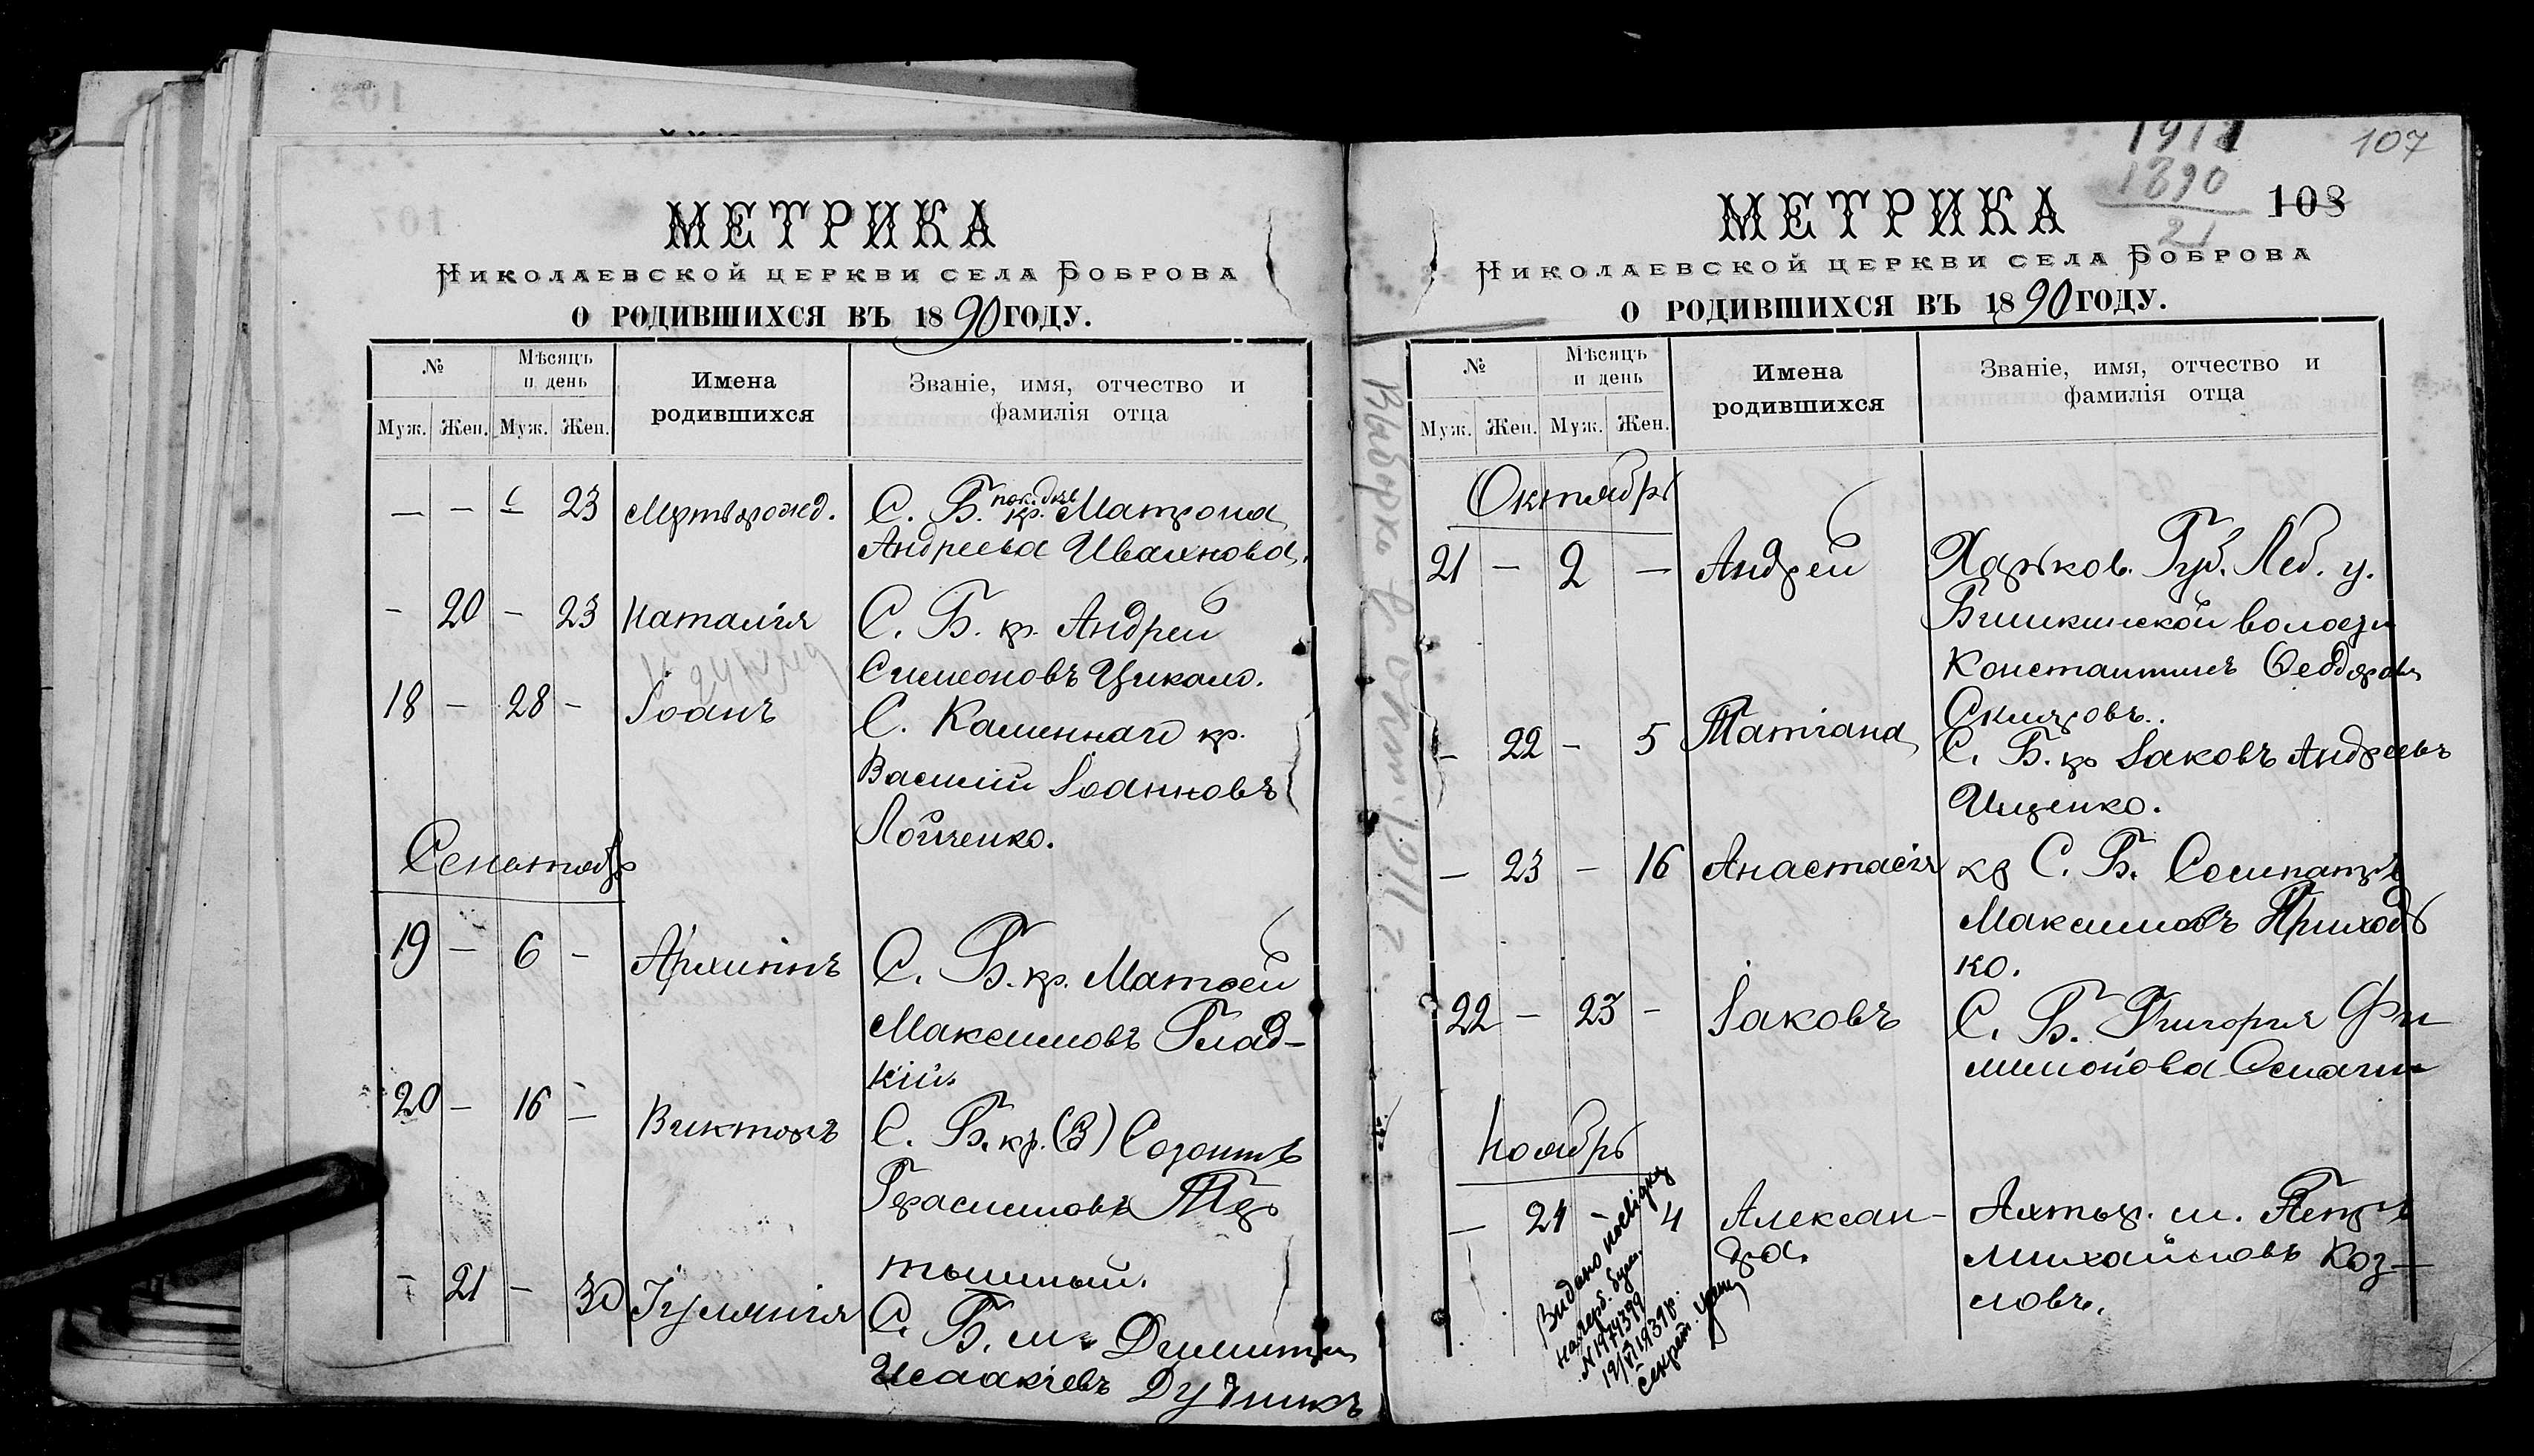 МЕТРИКА
Николаевской церкви села Боброва
О РОДИВШИХСЯ ВЪ 1890 ГОДУ.
№
Мѣсяцъ и день
Имена родившихся
Званіе, имя, отчество и фамилія отца
Муж. Жен. Муж. Жен.
— — — 23 Мертворожд. С. Б. кр. Матрона
Андреева Ивахнова.
- 20 - 23 Наталія С. Б. кр. Андрей
Симеоновъ Цикало.
18 - 28 - Іоанъ С. Каменнаго кр.
Василій Іоанновъ
Лойченко.
Сентябрь
19 - 6 - Архиппъ С. Б. кр. Матѳей
Максимовъ Глад-
кій.
20 - 16 - Викторъ С. Б. кр. (В) Созонтъ
Герасимовъ
21 - 30 С. Б. м. Димитрій
Исаакіевъ Дудникъ
107
1911
1890
21
108
МЕТРИКА
Николаевской церкви села Боброва
О РОДИВШИХСЯ ВЪ 1890 ГОДУ.
№
Мѣсяцъ и день
Имена родившихся
Званіе, имя, отчество и фамилія отца
Муж. Жен. Муж. Жен.
Октябрь
21 - 2 - Андрей Харьков. Губ. Леб. у.
Бишкинской волости
Константинъ Ѳеодоровъ
Скляровъ.
- 22 - 5 Татіана С. Б. кр Іаковъ Андреевъ
Ищенко.
- 23 - 16 Анастасія кр С. Б. Сосипатръ
Максимовъ Приходь
ко.
22 - 23 - Іаковъ С. Б. Григорія Фи
лимонова
Ноябрь
- 24 - 4 Алексан- Ахтыр. м. Петръ
дра. Михайловъ Коз-
ловъ.
Видано
на герб. бум.
№ 1974399
Секрет.